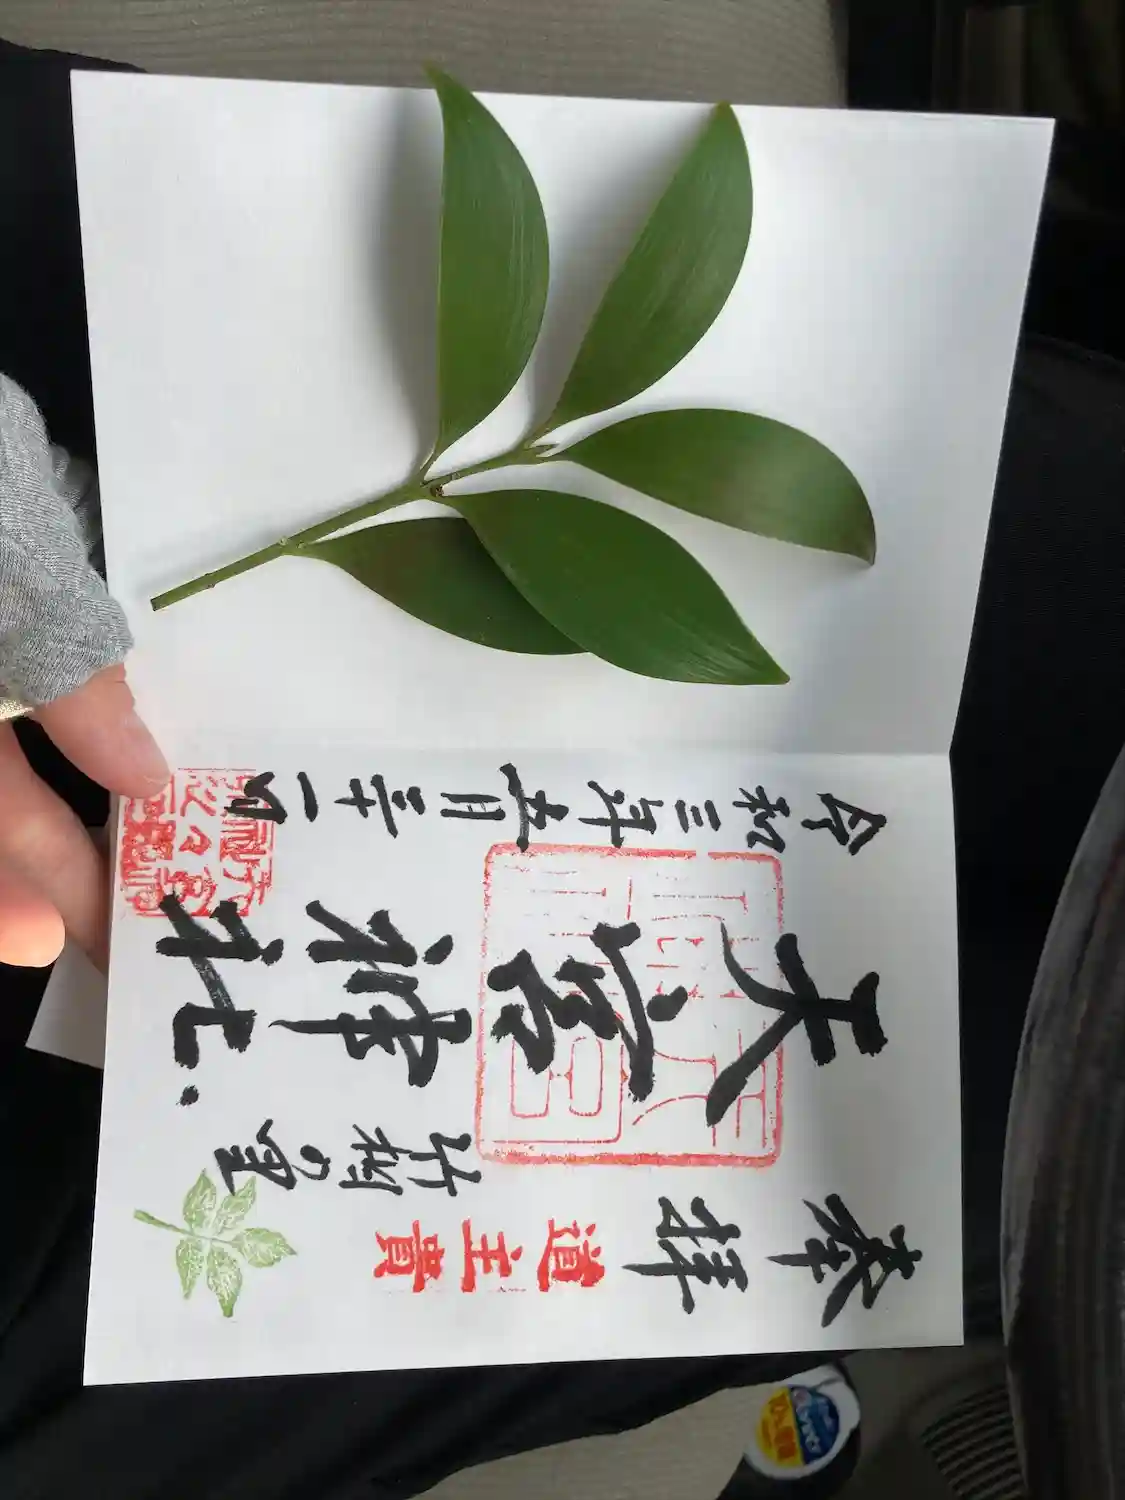 奉拝
道主貴
の里
天宮神社
令和三年五月三十一日